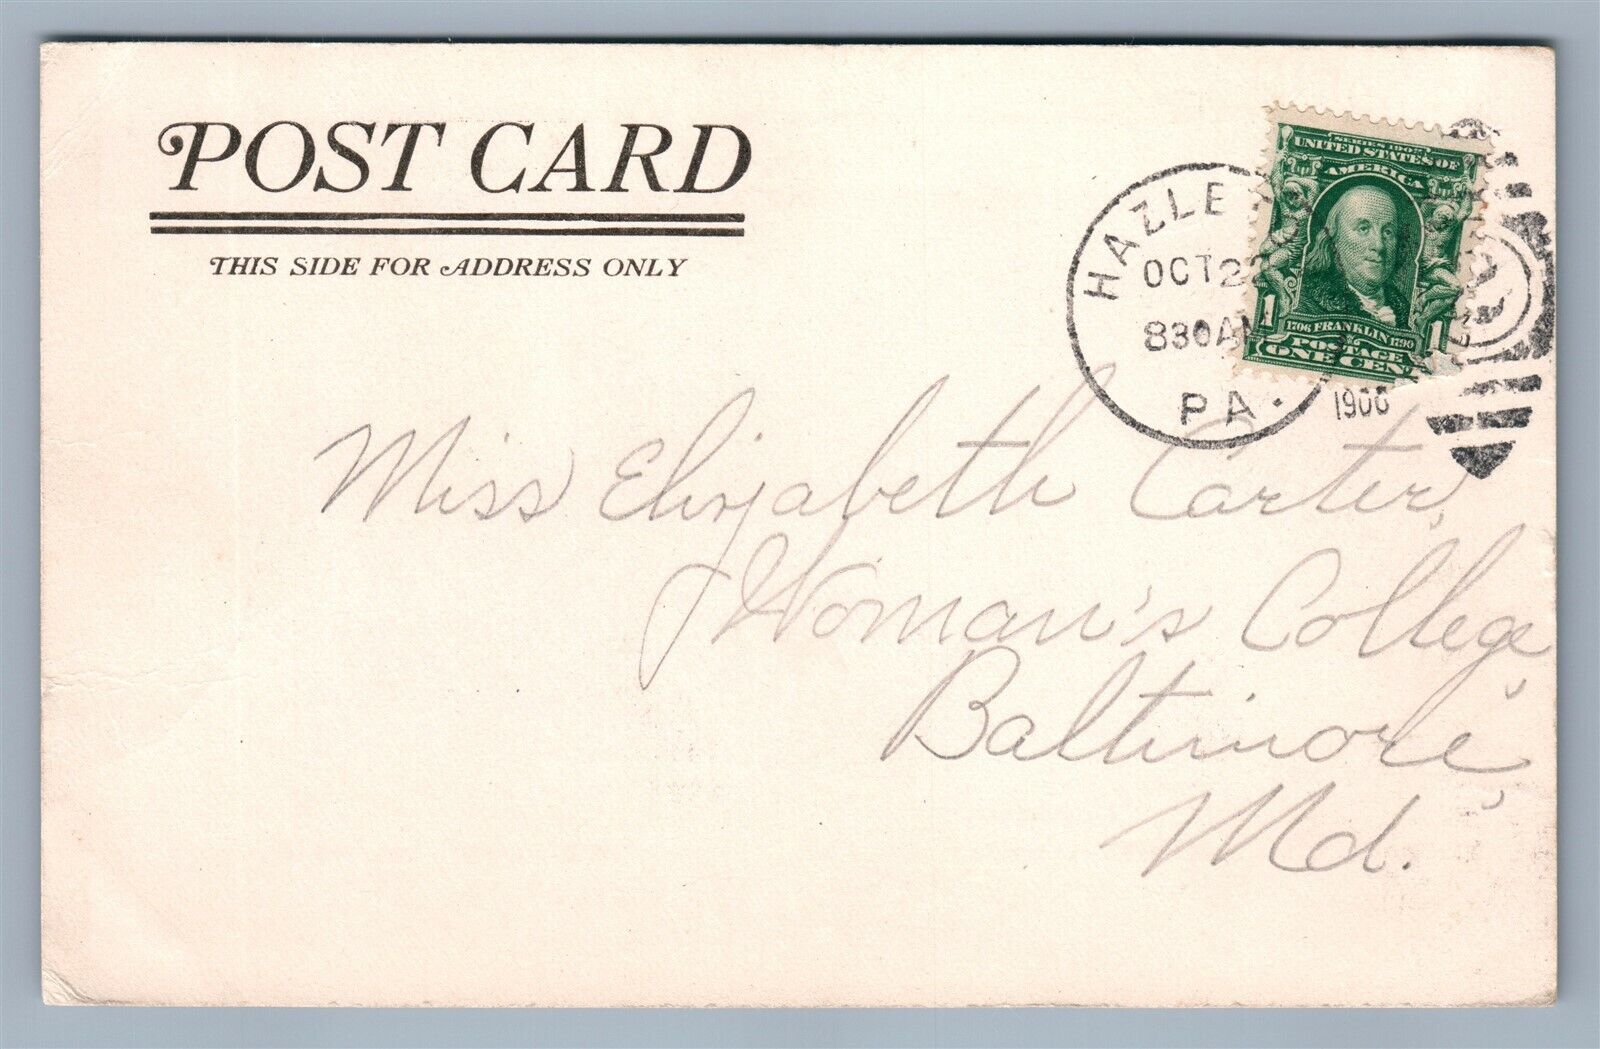 POST CARD
THIS SIDE FOR ADDRESS ONLY
HAZLE
OCT 22
830 AM
PA.
SERIES 1902
UNITED STATES OF
AMERICA
1706 FRANKLIN 1790
1 1
POSTAGE
ONE CENT
Miss Elizabeth Carter,
Woman's College,
Baltimore,
Md.